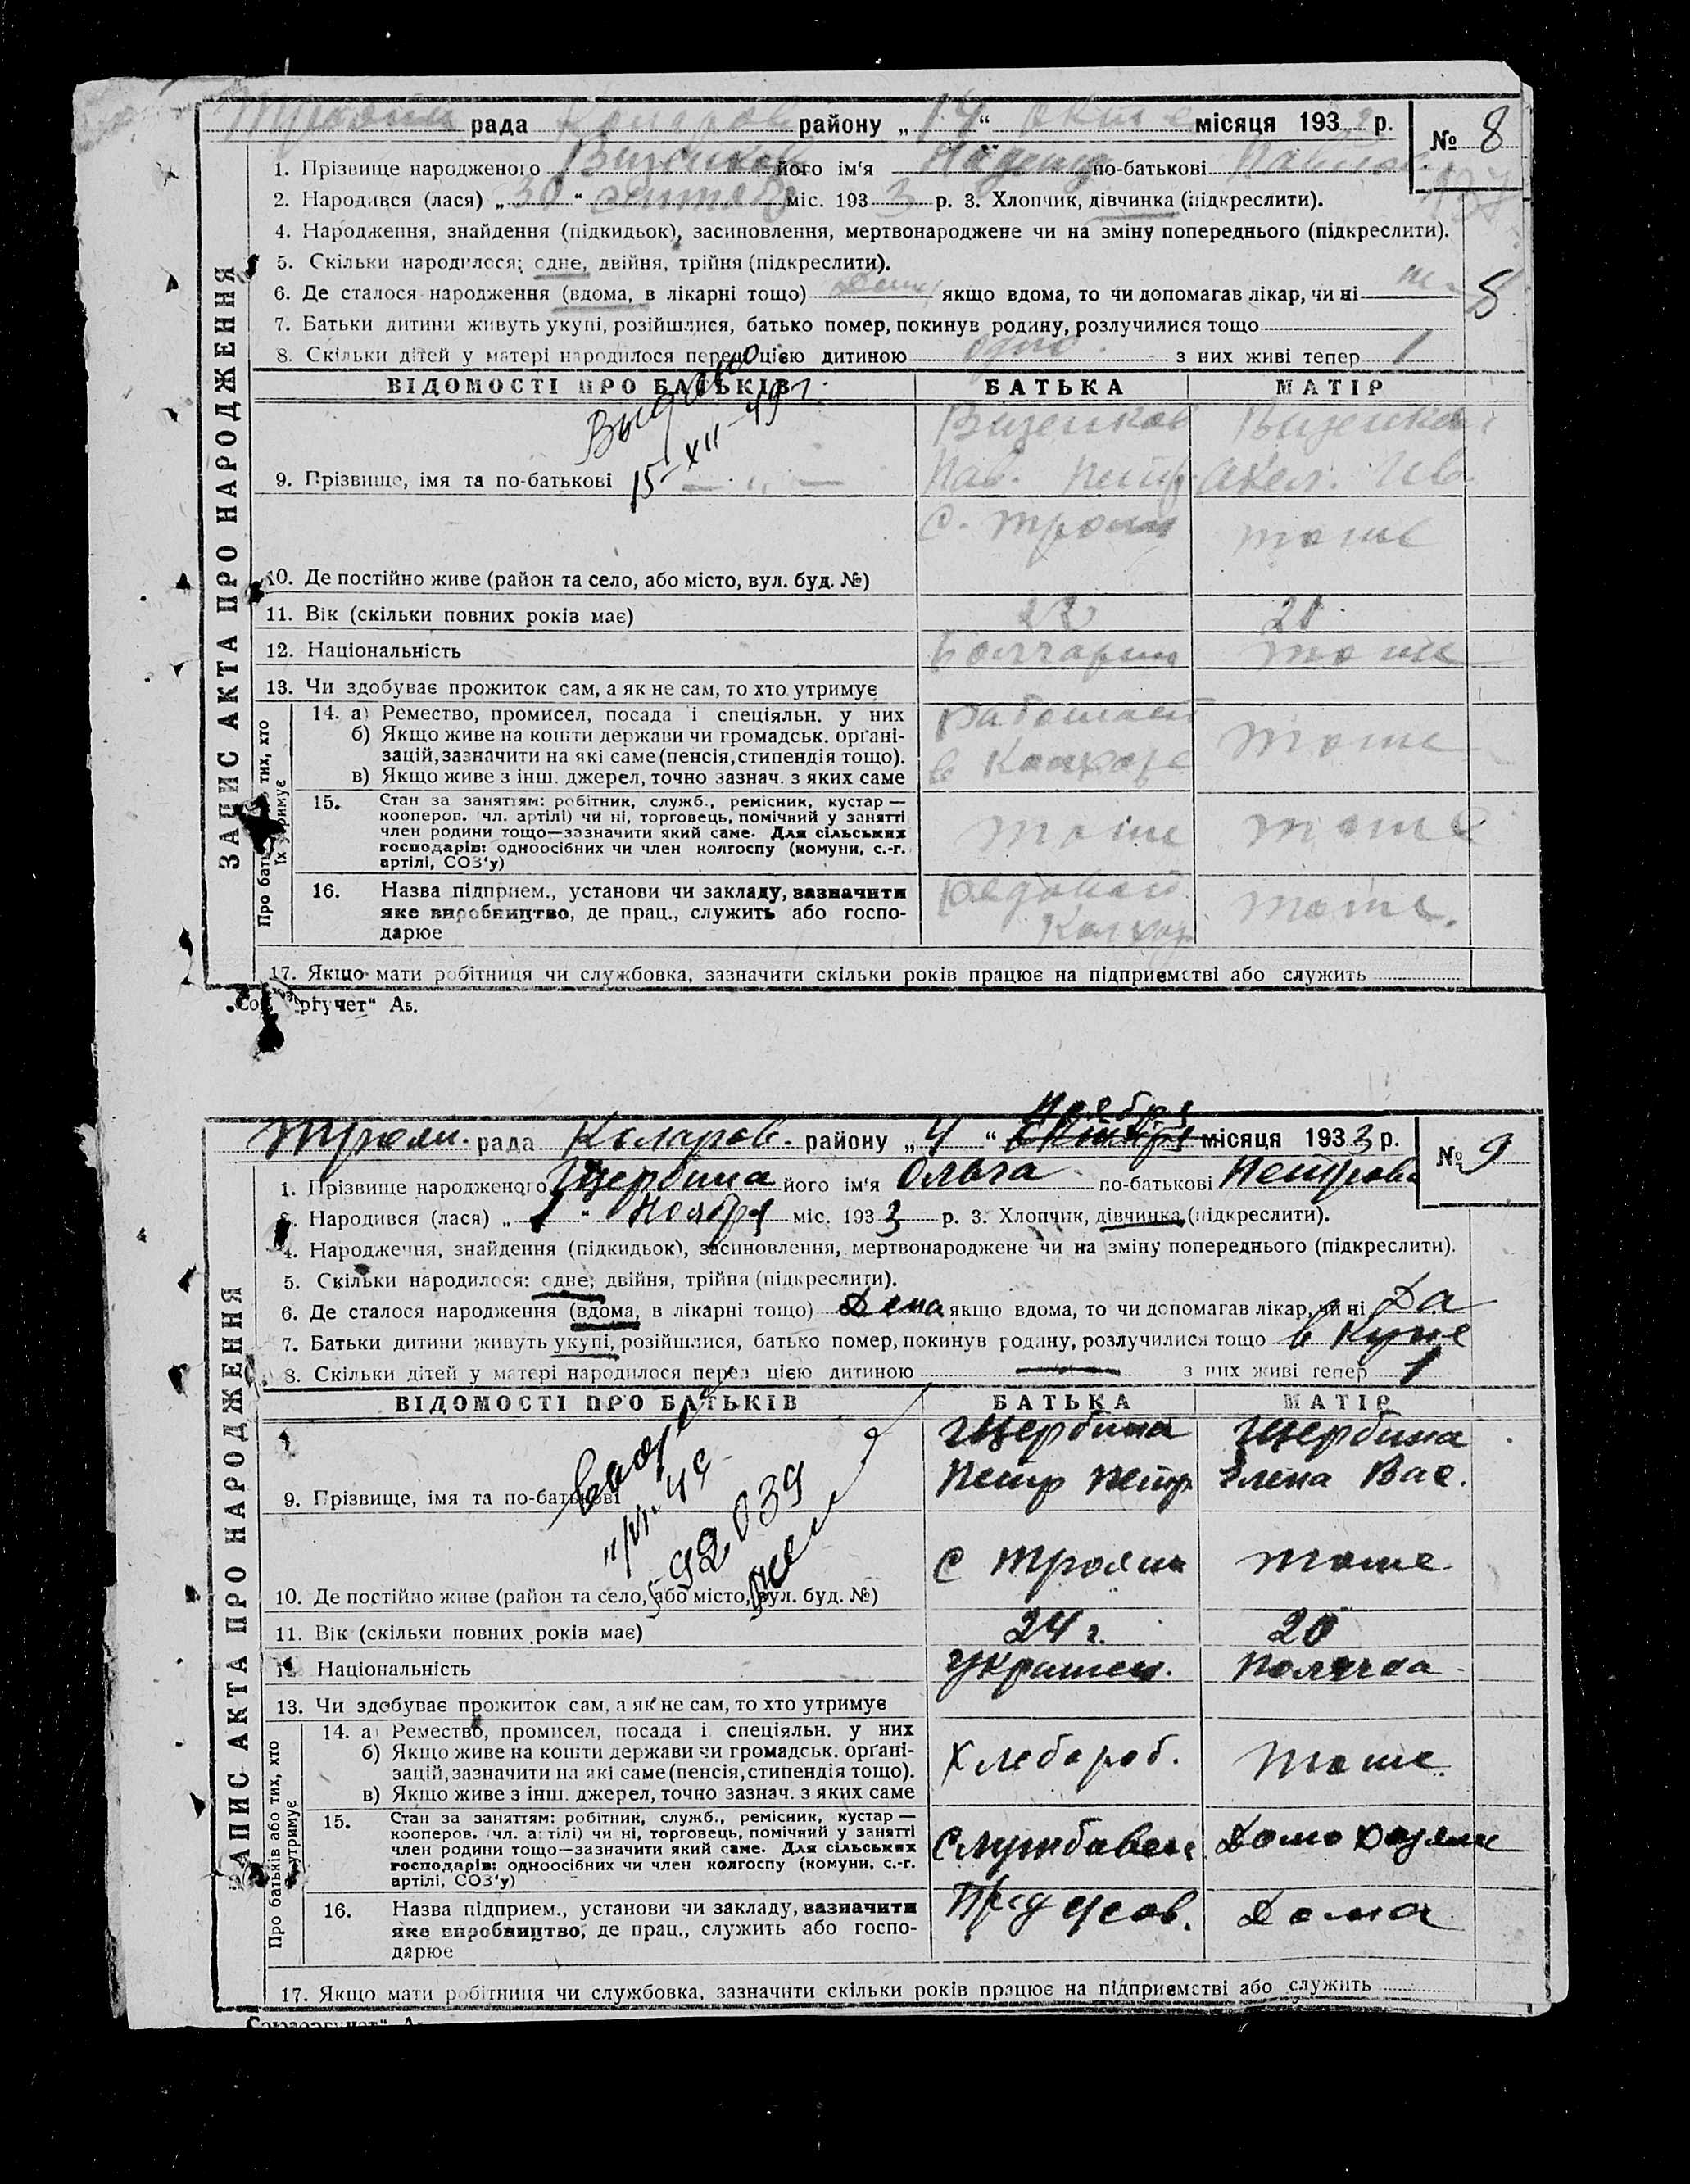 Троян рада Коларов району „ 14 “ месяця 193 р.
№ 8
1. Прізвище народженого його ім‘я Надежд по-батькові Павлов
2. Народився (лася) „ 30 “ сентяб міс. 193 3 р. 3. Хлопчик, дівчинка (підкреслити).
4. Народження, знайдення (підкидьок), засиновлення, мертвонароджене чи на зміну попереднього (підкреслити).
5. Скільки народилося: одне, двійня, трійня (підкреслити).
6. Де сталося народження (вдома, в лікарні тощо) якщо вдома, то чи допомагав лікар, чи ні
8
7. Батьки дитини живуть укупі, розійшлися, батько помер, покинув родину, розлучилися тощо
8. Скільки дітей у матері народилося перед цією дитиною одно з них живі тепер 1
ВІДОМОСТІ ПРО БАТЬКІВ БАТЬКА МАТІР
Выдано
15-XII-49 г.
Пав. Петр. Акел. Ив.
9. Прізвище, імя та по-батькові
С. Троян тоже
10. Де постійно живе (район та село, або місто, вул. буд. №)
11. Вік (скільки повних років має) 22
12. Національність Болгарин тоже
13. Чи здобуває прожиток сам, а як не сам, то хто утримує
14. а) Ремество, промисел, посада і спеціяльн. у них
б) Якщо живе на кошти держави чи громадськ. орґані-
зацій, зазначити на які саме (пенсія, стипендія тощо).
в) Якщо живе з інш. джерел, точно зазнач. з яких саме
Работает в Колхозе тоже
15. Стан за заняттям: робітник, служб., ремісник, кустар —
кооперов. (чл. артілі) чи ні, торговець, помічний у занятті
член родини тощо—зазначити який саме. Для сільських
господарів: одноосібних чи член колгоспу (комуни, с.-г.
артілі, СОЗ‘у)
тоже тоже
16. Назва підприєм., установи чи закладу, зазначити
яке виробництво, де прац., служить або госпо-
дарює
Рядовой Колхоз тоже.
17. Якщо мати робітниця чи службовка, зазначити скільки років працює на підприємстві або служить
ЗАПИС АКТА ПРО НАРОДЖЕННЯ
Троян. рада Коларов. району „ 4 “ Ноября місяця 193 3 р.
№ 9
1. Прізвище народженого Щербина його ім‘я Ольга по-батькові Петровна
Народився (лася) „ 1 “ Ноября міс. 193 3 р. 3. Хлопчик, дівчинка (підкреслити).
4. Народження, знайдення (підкидьок), засиновлення, мертвонароджене чи на зміну попереднього (підкреслити).
5. Скільки народилося: одне, двійня, трійня (підкреслити).
6. Де сталося народження (вдома, в лікарні тощо) Дома якщо вдома, то чи допомагав лікар, чи ні Да
7. Батьки дитини живуть укупі, розійшлися, батько помер, покинув родину, розлучилися тощо в купе
8. Скільки дітей у матері народилося перед цією дитиною з них живі тепер 1
ВІДОМОСТІ ПРО БАТЬКІВ БАТЬКА МАТІР
Щербина Щербина
Петр Петр. Елена Вас.
9. Прізвище, імя та по-батькові
С Троян тоже
10. Де постійно живе (район та село, або місто, вул. буд. №)
11. Вік (скільки повних років має) 24 г. 20
Національність Украинец. Полячка
13. Чи здобуває прожиток сам, а як не сам, то хто утримує
14. а) Ремество, промисел, посада і спеціяльн. у них
б) Якщо живе на кошти держави чи громадськ. орґані-
зацій, зазначити на які саме (пенсія, стипендія тощо).
в) Якщо живе з інш. джерел, точно зазнач. з яких саме
Хлебороб. тоже.
15. Стан за заняттям: робітник, служб., ремісник, кустар —
кооперов. (чл. артілі) чи ні, торговець, помічний у занятті
член родини тощо—зазначити який саме. Для сільських
господарів: одноосібних чи член колгоспу (комуни, с.-г.
артілі, СОЗ‘у)
16. Назва підприєм., установи чи закладу, зазначити
яке виробництво, де прац., служить або госпо-
дарює
Дома
17. Якщо мати робітниця чи службовка, зазначити скільки років працює на підприємстві або служить
ЗАПИС АКТА ПРО НАРОДЖЕННЯ
Про батьків або тих, хто
їх утримує